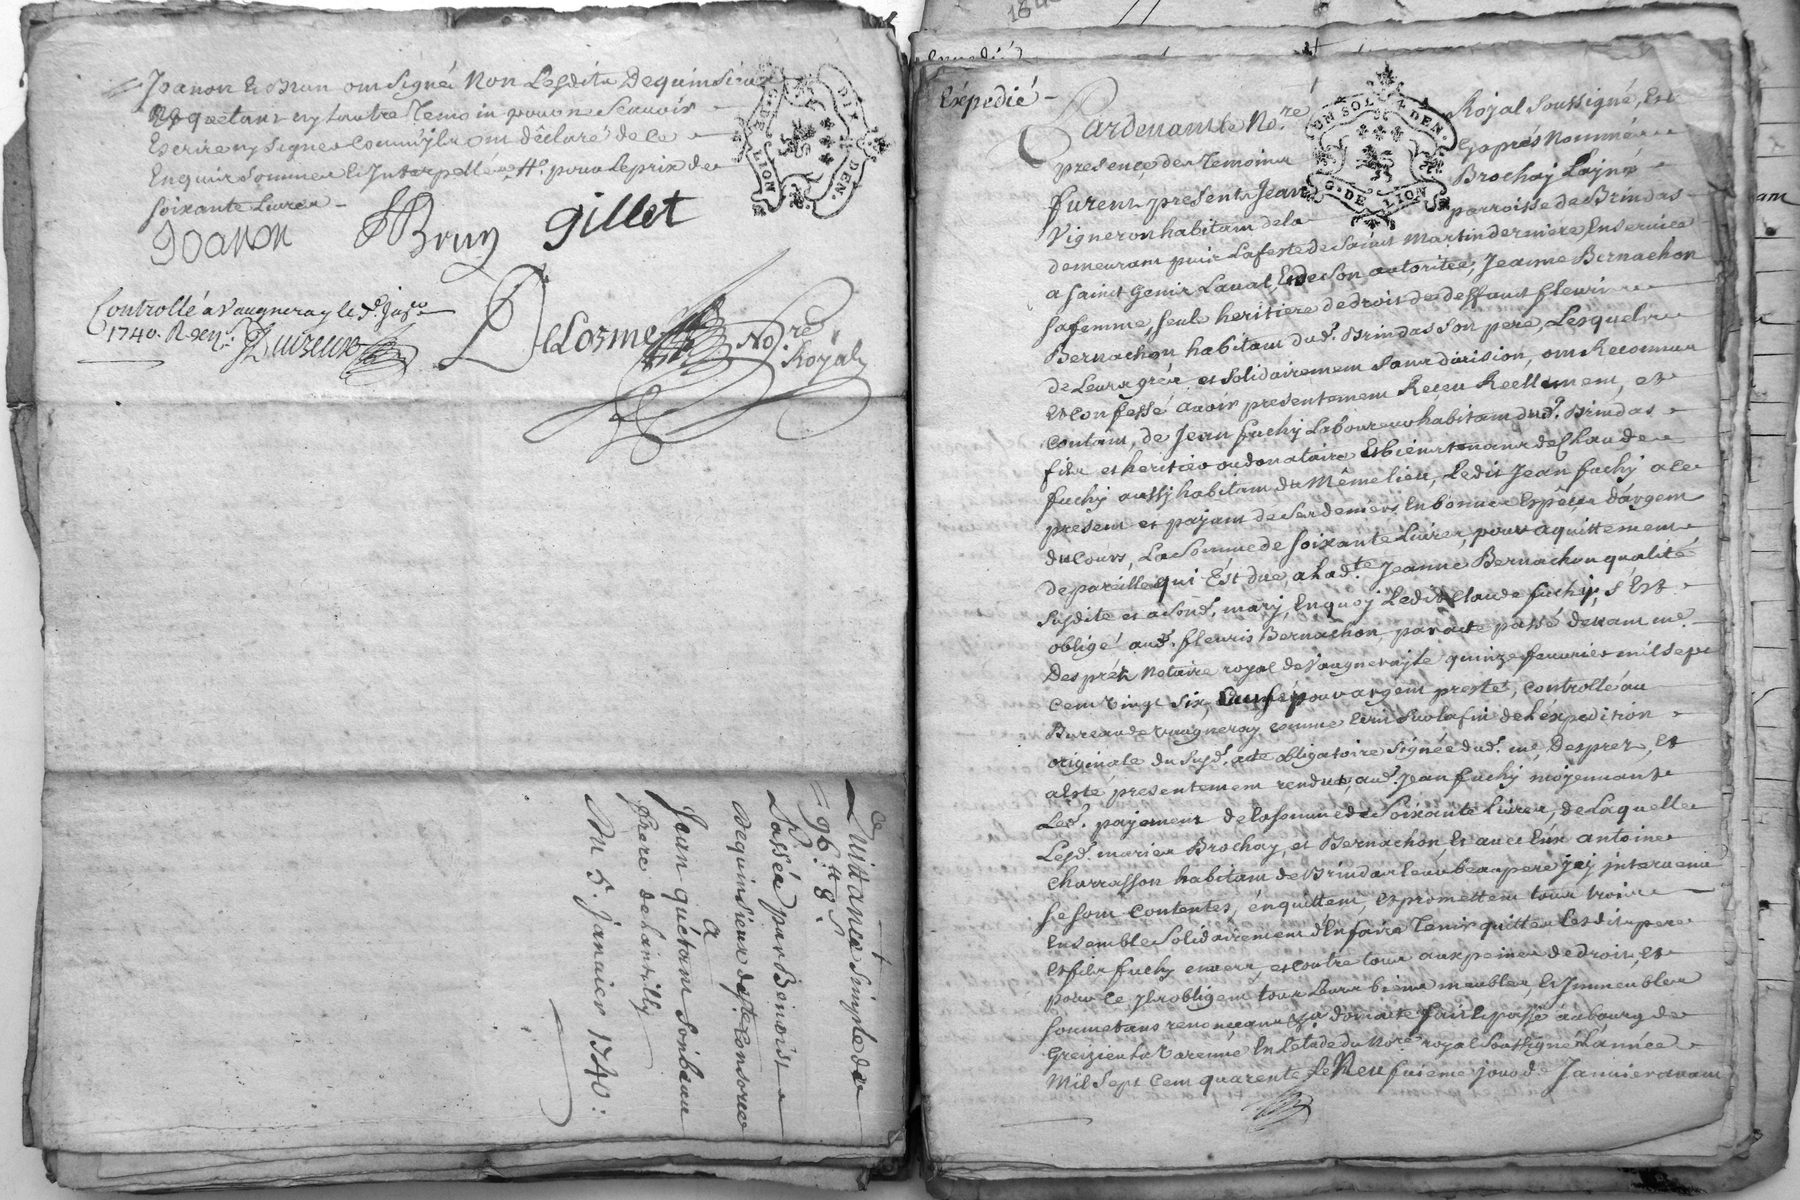 Joanon et Brun ont signé Non Lesdits Dequinsieux
Et quetant ny Lautre Temoin pour ne Scavoir
Escrire ny signer comm'ils ont déclaré de ce
Enquis Sommés et Interpellés, pour le prix de
soixante Livres
Joanon Brun gillet
Controllé a Vaugneray le
1740. Delorme No.re
Royal
DIX DEN.
G. DE LION
Quittance simple de
96.tt 8.s
Passée par Benoist
Dequinsieux de fte Consorce
a
Jean quétant son beau
frere de chantilly
Du 5. janvier 1740.
Expedié
Pardevant le No.re Royal Soussigné, Et
presence des Temoins Cy aprés Nommés
furent presents Jean Brochay Layné
Vigneron habitant de la parroisse de Brindas
UN SOL 4 DEN.
G. DE LION
demeurant puis La feste de Saint Martin derniere, En service
a Saint Genis Laval, Et de Son autoritée, Jeanne Bernachon
sa femme, seule heritiere de droit de deffunt fleuris
Bernachon habitant dud. Brindas son pere, Lesquels
de Leurs grés et solidairement sans division, ont Reconnu
et confessé avoir presentement Reçeu Reellement, et
contant, de Jean fuchy Laboureur habitant dud. Brindas
fils et heritier ou donataire Et bien tenant de Claude
fuchy aussy habitant du Même lieu, Ledit Jean fuchy a ce
present et payant de ses deniers En bonnes Espêces d'argent
du Cours, La Somme de soixante Livres, pour aquittement
de pareille qui Est due, a Lad.te Jeanne Bernachon qualité
susdite et a son d. mary, En quoy Ledit Claude fuchy, s'Est
obligé aud. fleuris Bernachon par acte passé devant me
Després Notaire royal de Vaugneray le quinze fevrier mil sept
cent vingt six, pour argent presté, controllé au
Bureau de Vaugneray comme Ecrit sur la fin de L'expedition
originale du susd. acte obligatoire signée dud. me Desprez, Et
a Esté presentement rendue, aud. Jean fuchy moyennant
Led. payement de la somme de Soixante Livres, de Laquelle
Lesd. mariés Brochay, et Bernachon Et avec Eux antoine
Charrasson habitant de Brindas leur beau pere icy intervenu
se sont contentés, en quittent, et promettent tous trois
Ensemble solidairement d'En faire Tenir quittes Lesdits pere
Et fils fuchy envers, et contre tous aux peines de droit, Et
pour ce Ils obligent tous Leurs biens meubles Et Immeubles
soumettans renonceants dont acte fait & passé au bourg de
Greizieu La Varenne En L'etude du No.re royal soussigné L'année
Mil Sept Cent quarente Le Neufvieme jour de Janvier avant